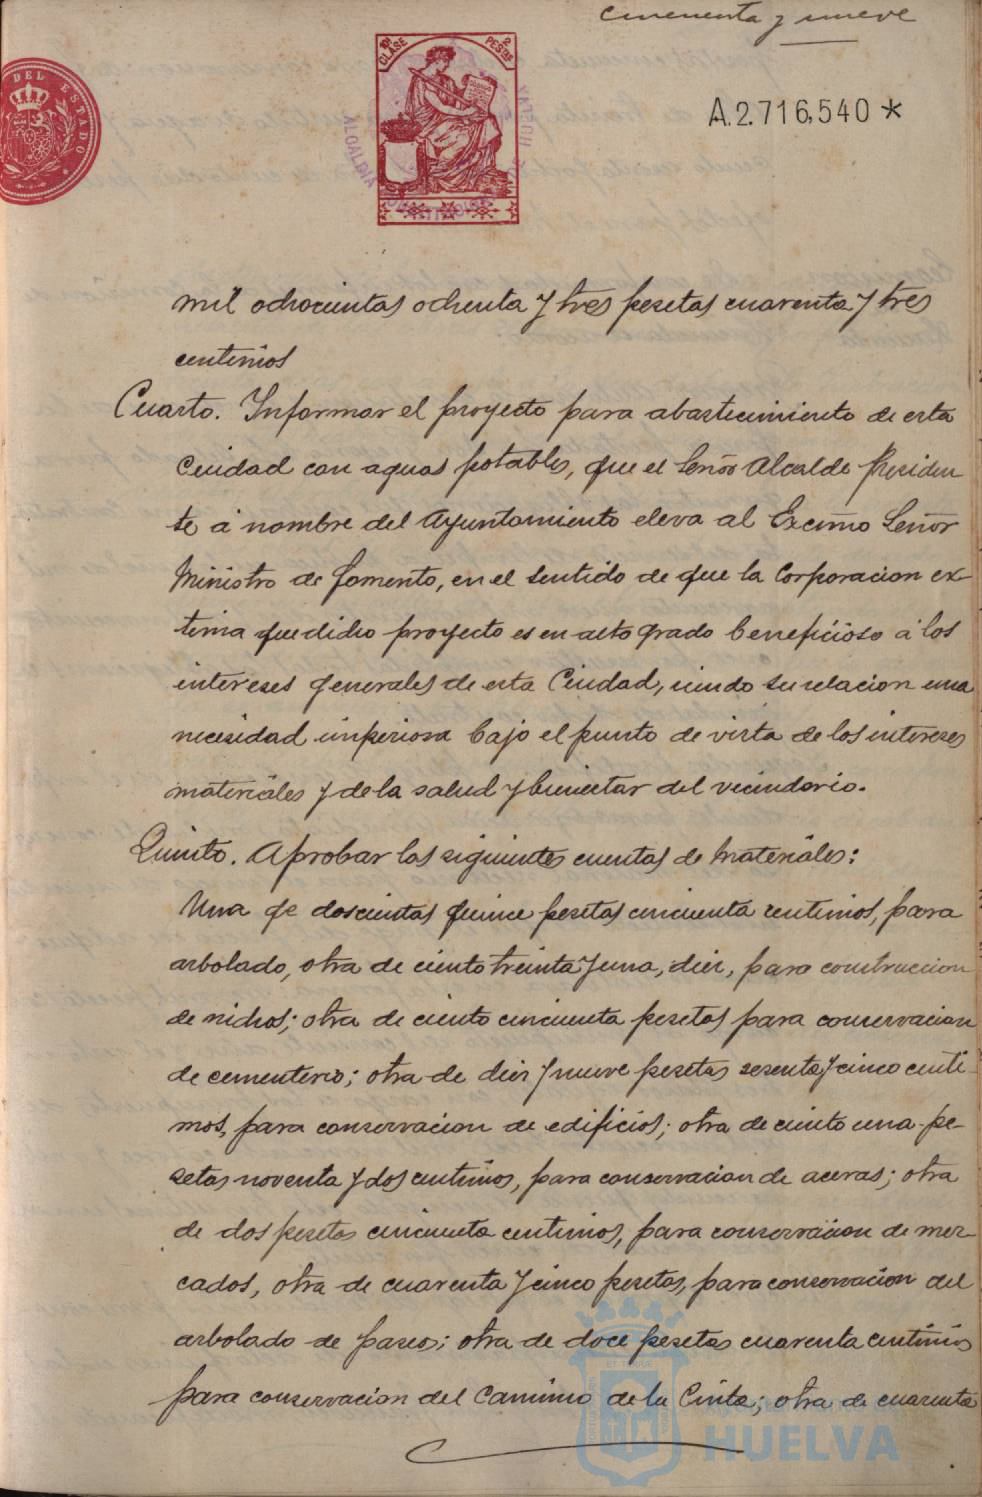 cincuenta y nueve
DEL ESTADO
10ª CLASE
2 PESTAS
ALCALDIA HUELVA
A.2.716,540 *
mil ochocientas ochenta y tres pesetas cuarenta y tres
centimos
Cuarto. Informar el proyecto para abastecimiento de esta
Ciudad con aguas potables, que el Señor Alcalde Presiden-
te á nombre del Ayuntamiento eleva al Excmo Señor
Ministro de Fomento, en el sentido de que la Corporacion ex-
tima que dicho proyecto es en alto grado beneficioso á los
intereses generales de esta Ciudad, siendo su relacion una
necesidad imperiosa bajo el punto de vista de los intereses
materiales y de la salud y bienestar del vecindario.
Quinto. Aprobar las siguientes cuentas de materiales:
Una de doscientas quince pesetas cincuenta centimos, para
arbolado, otra de ciento treinta y una, diez, para construccion
de nichos; otra de ciento cincuenta pesetas para conservacion
de cementerio; otra de diez y nueve pesetas sesenta y cinco centi-
mos, para conservacion de edificios; otra de ciento una pe-
setas noventa y dos centimos, para conservacion de aceras; otra
de dos pesetas cincuenta centimos, para conservacion de mer-
cados, otra de cuarenta y cinco pesetas, para conservacion del
arbolado de paseos; otra de doce pesetas cuarenta centimos
para conservacion del Camino de la Cinta; otra de cuarenta
HUELVA